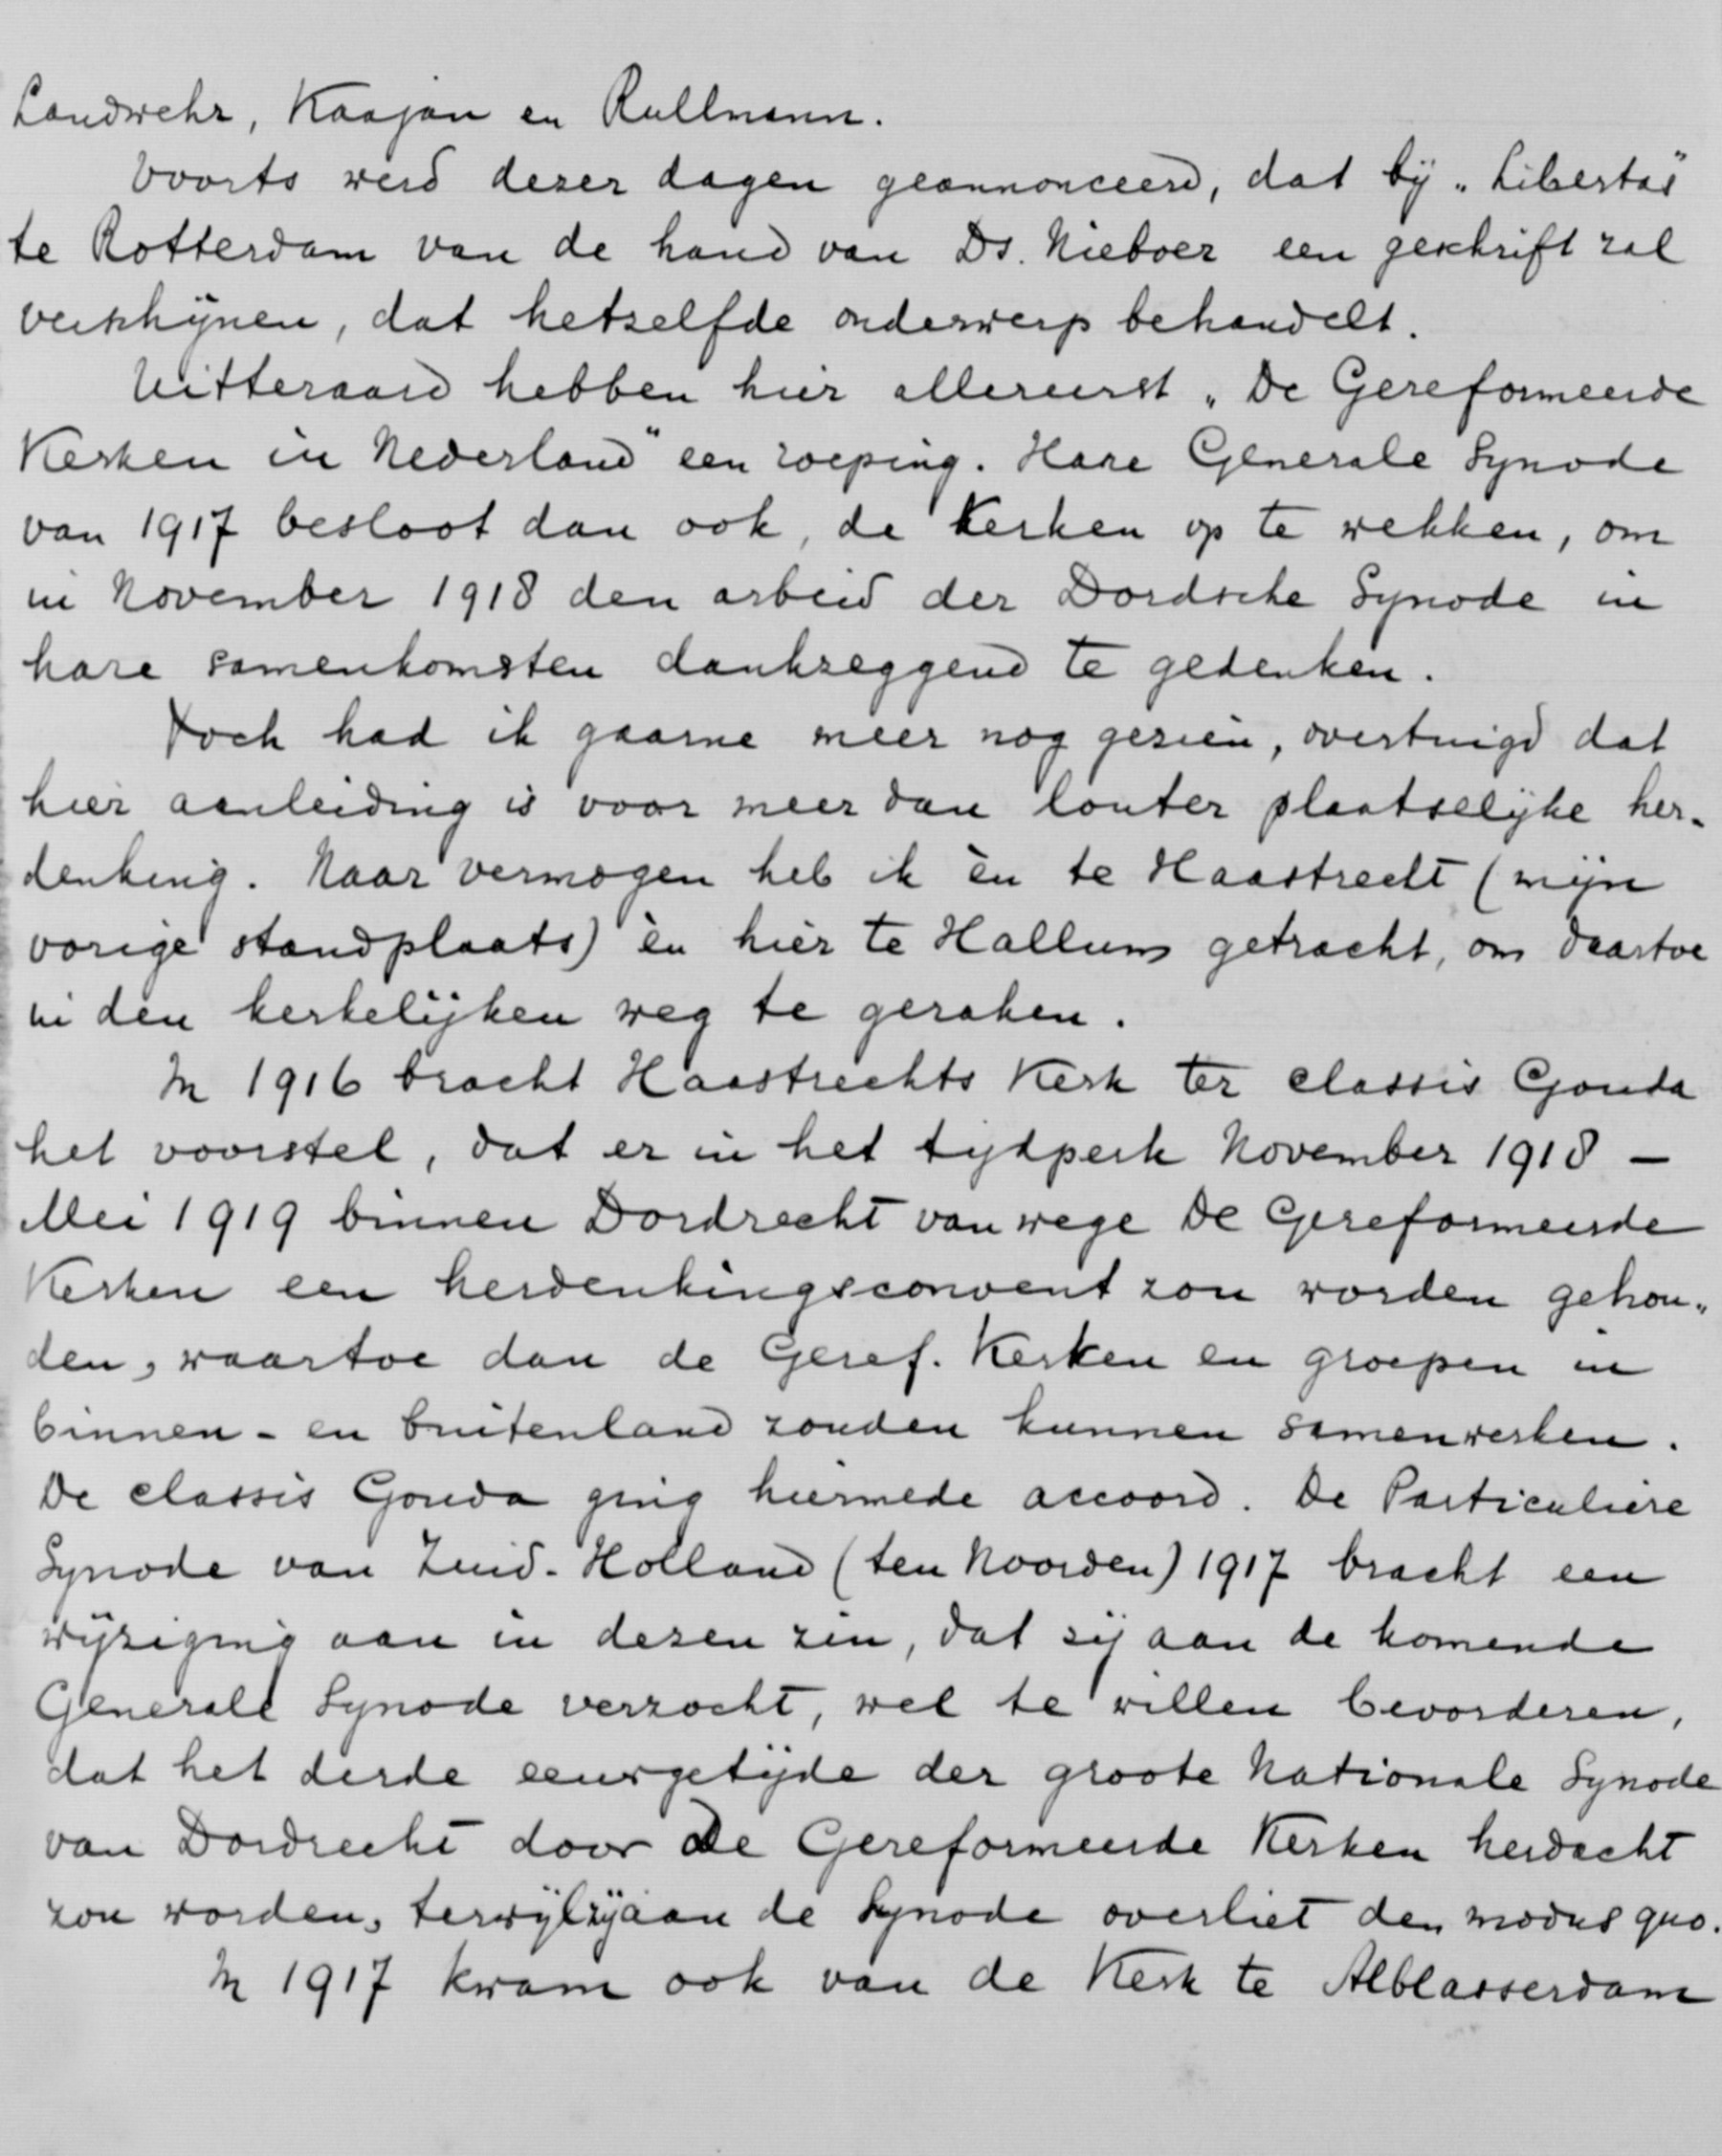 Landwehr, Kaajan en Rullmann.
Voorts werd dezer dagen geannonceerd, dat bij „Libertas"
te Rotterdam van de hand van Ds. Nieboer een geschrift zal
verschijnen, dat hetzelfde onderwerp behandelt.
Uitteraard hebben hier allereerst „De Gereformeerde
Kerken in Nederland" een roeping. Hare Generale Synode
van 1917 besloot dan ook, de Kerken op te wekken, om
in November 1918 den arbeid der Dordsche Synode in
hare samenkomsten dankzeggend te gedenken.
Toch had ik gaarne meer nog gezien, overtuigd dat
hier aanleiding is voor meer dan louter plaatselijke her-
denking. Naar vermogen heb ik èn te Haastrecht (mijn
vorige standplaats) èn hier te Hallum getracht, om daartoe
in den kerkelijken weg te geraken.
In 1916 bracht Haastrechts Kerk ter classis Gouda
het voorstel, dat er in het tijdperk November 1918 –
Mei 1919 binnen Dordrecht vanwege De Gereformeerde
Kerken een herdenkingsconvent zou worden gehou„
den, waartoe dan de Geref. Kerken en groepen in
binnen- en buitenland zouden kunnen samenwerken.
De classis Gouda ging hiermede accoord. De Particuliere
Synode van Zuid-Holland (ten Noorden) 1917 bracht een
wijziging aan in dezen zin, dat zij aan de komende
Generale Synode verzocht, wel te willen bevorderen,
dat het derde eeuwgetijde der groote Nationale Synode
van Dordrecht door De Gereformeerde Kerken herdacht
zou worden, terwijl zij aan de Synode overliet den modus quo.
In 1917 kwam ook van de Kerk te Alblasserdam